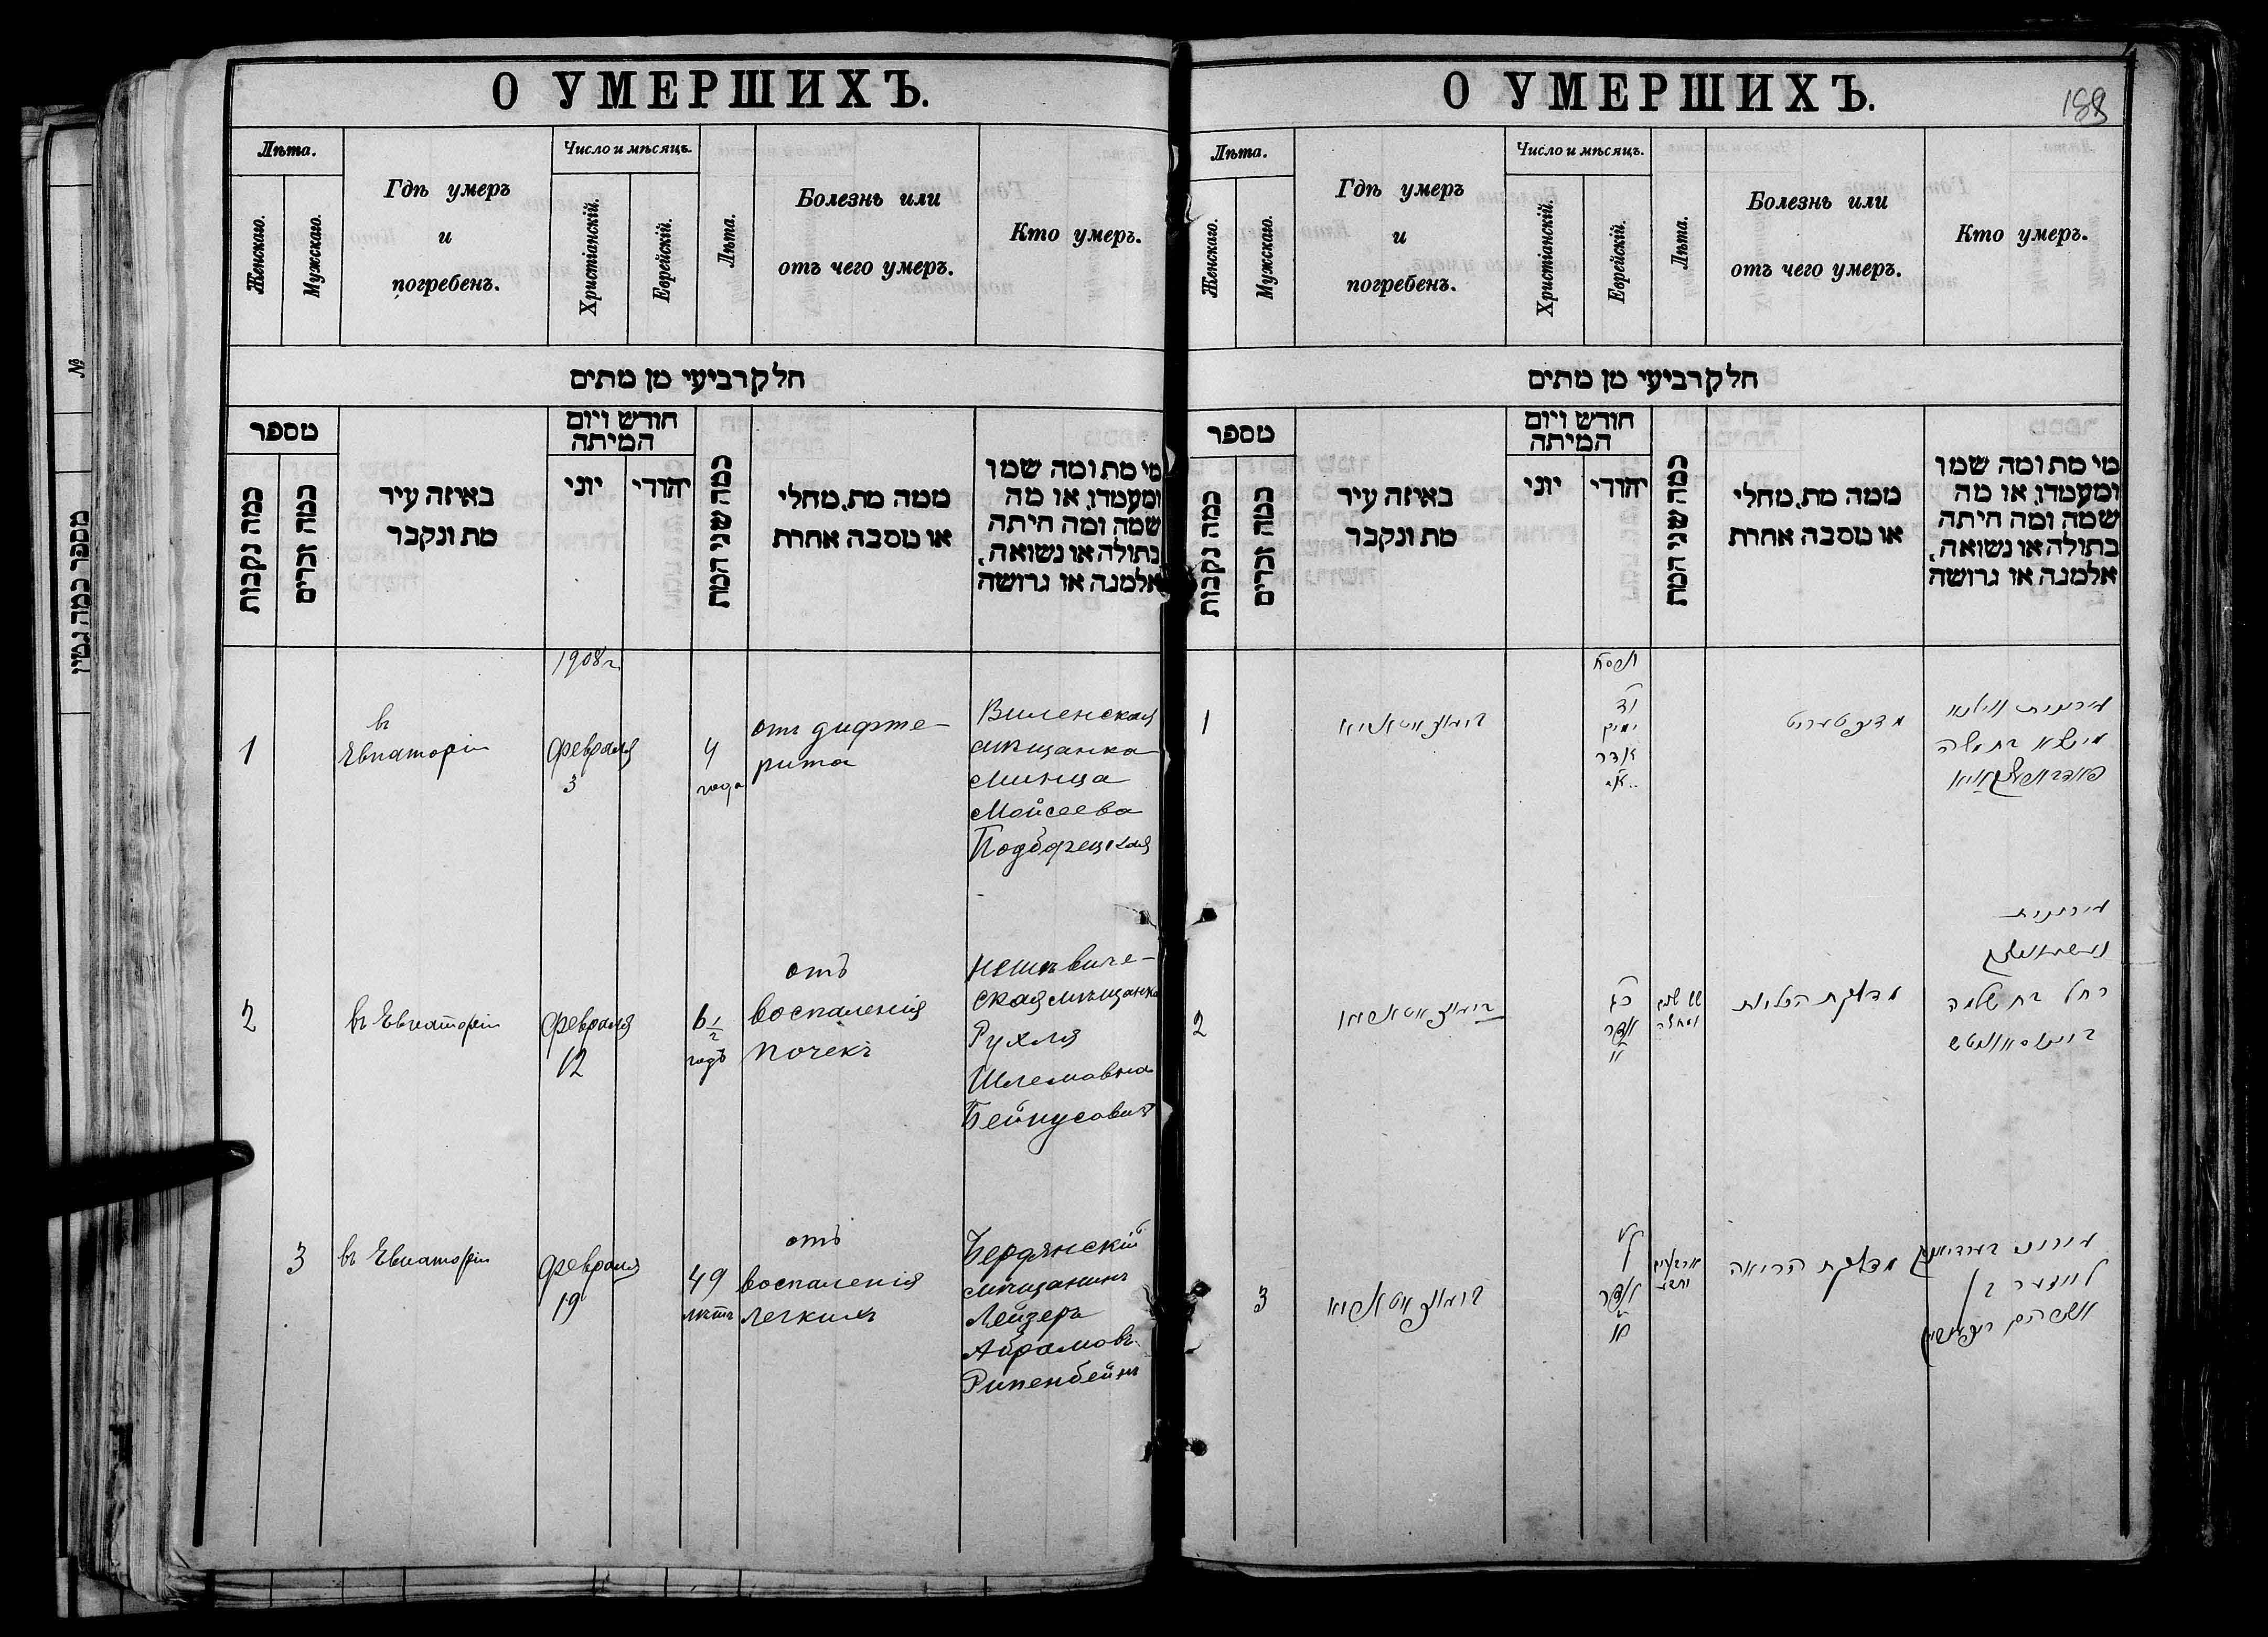 О УМЕРШИХЪ.
Лѣта.
Женскаго.
Мужскаго.
Гдѣ умеръ
и
погребенъ.
Число и мѣсяцъ.
Христіанскій.
Еврейскій.
Лѣта.
Болезнь или
отъ чего умеръ.
Кто умеръ.
חלק רביעי מן מתים
מספר
כמה נקבות
כמה זכרים
באיזה עיר
מת ונקבר
חודש ויום
המיתה
יוני
יהודי
כמה שני המת
ממה מת, מחלי
או מסבה אחרת
מי מת ומה שמו
ומעמדו, או מה
שמה ומה היתה
בתולה או נשואה,
אלמנה או גרושה
1908 г.
1
въ
Евпаторіи
февраля
3
4
года
отъ дифте-
рита
Виленская
мѣщанка
Минца
Мойсеева
Подборецкая
2
въ Евпаторіи
февраля
12
6 1/2
годъ
отъ
воспаленія
почекъ
ская мѣщанка
Рухля
Шлемовна
Бейнусовичъ
3
въ Евпаторіи
февраля
19
49
лѣтъ
отъ
воспаленія
легкихъ
Бердянскій
мѣщанинъ
Лейзеръ
Абрамовъ
Рипенбейнъ
О УМЕРШИХЪ.
188
Лѣта.
Женскаго.
Мужскаго.
Гдѣ умеръ
и
погребенъ.
Число и мѣсяцъ.
Христіанскій.
Еврейскій.
Лѣта.
Болезнь или
отъ чего умеръ.
Кто умеръ.
חלק רביעי מן מתים
מספר
כמה נקבות
כמה זכרים
באיזה עיר
מת ונקבר
חודש ויום
המיתה
יוני
יהודי
כמה שני המת
ממה מת, מחלי
או מסבה אחרת
מי מת ומה שמו
ומעמדו, או מה
שמה ומה היתה
בתולה או נשואה,
אלמנה או גרושה
תרסח
1
ימים
אדר
עירונית ווילנא
בת משה
2
אדר
מדלקת הכליות
עירונית
רחל בת שלמה
3
אדר
מדלקת הריאה
עירוני
בן
№
מספר כמה גטין